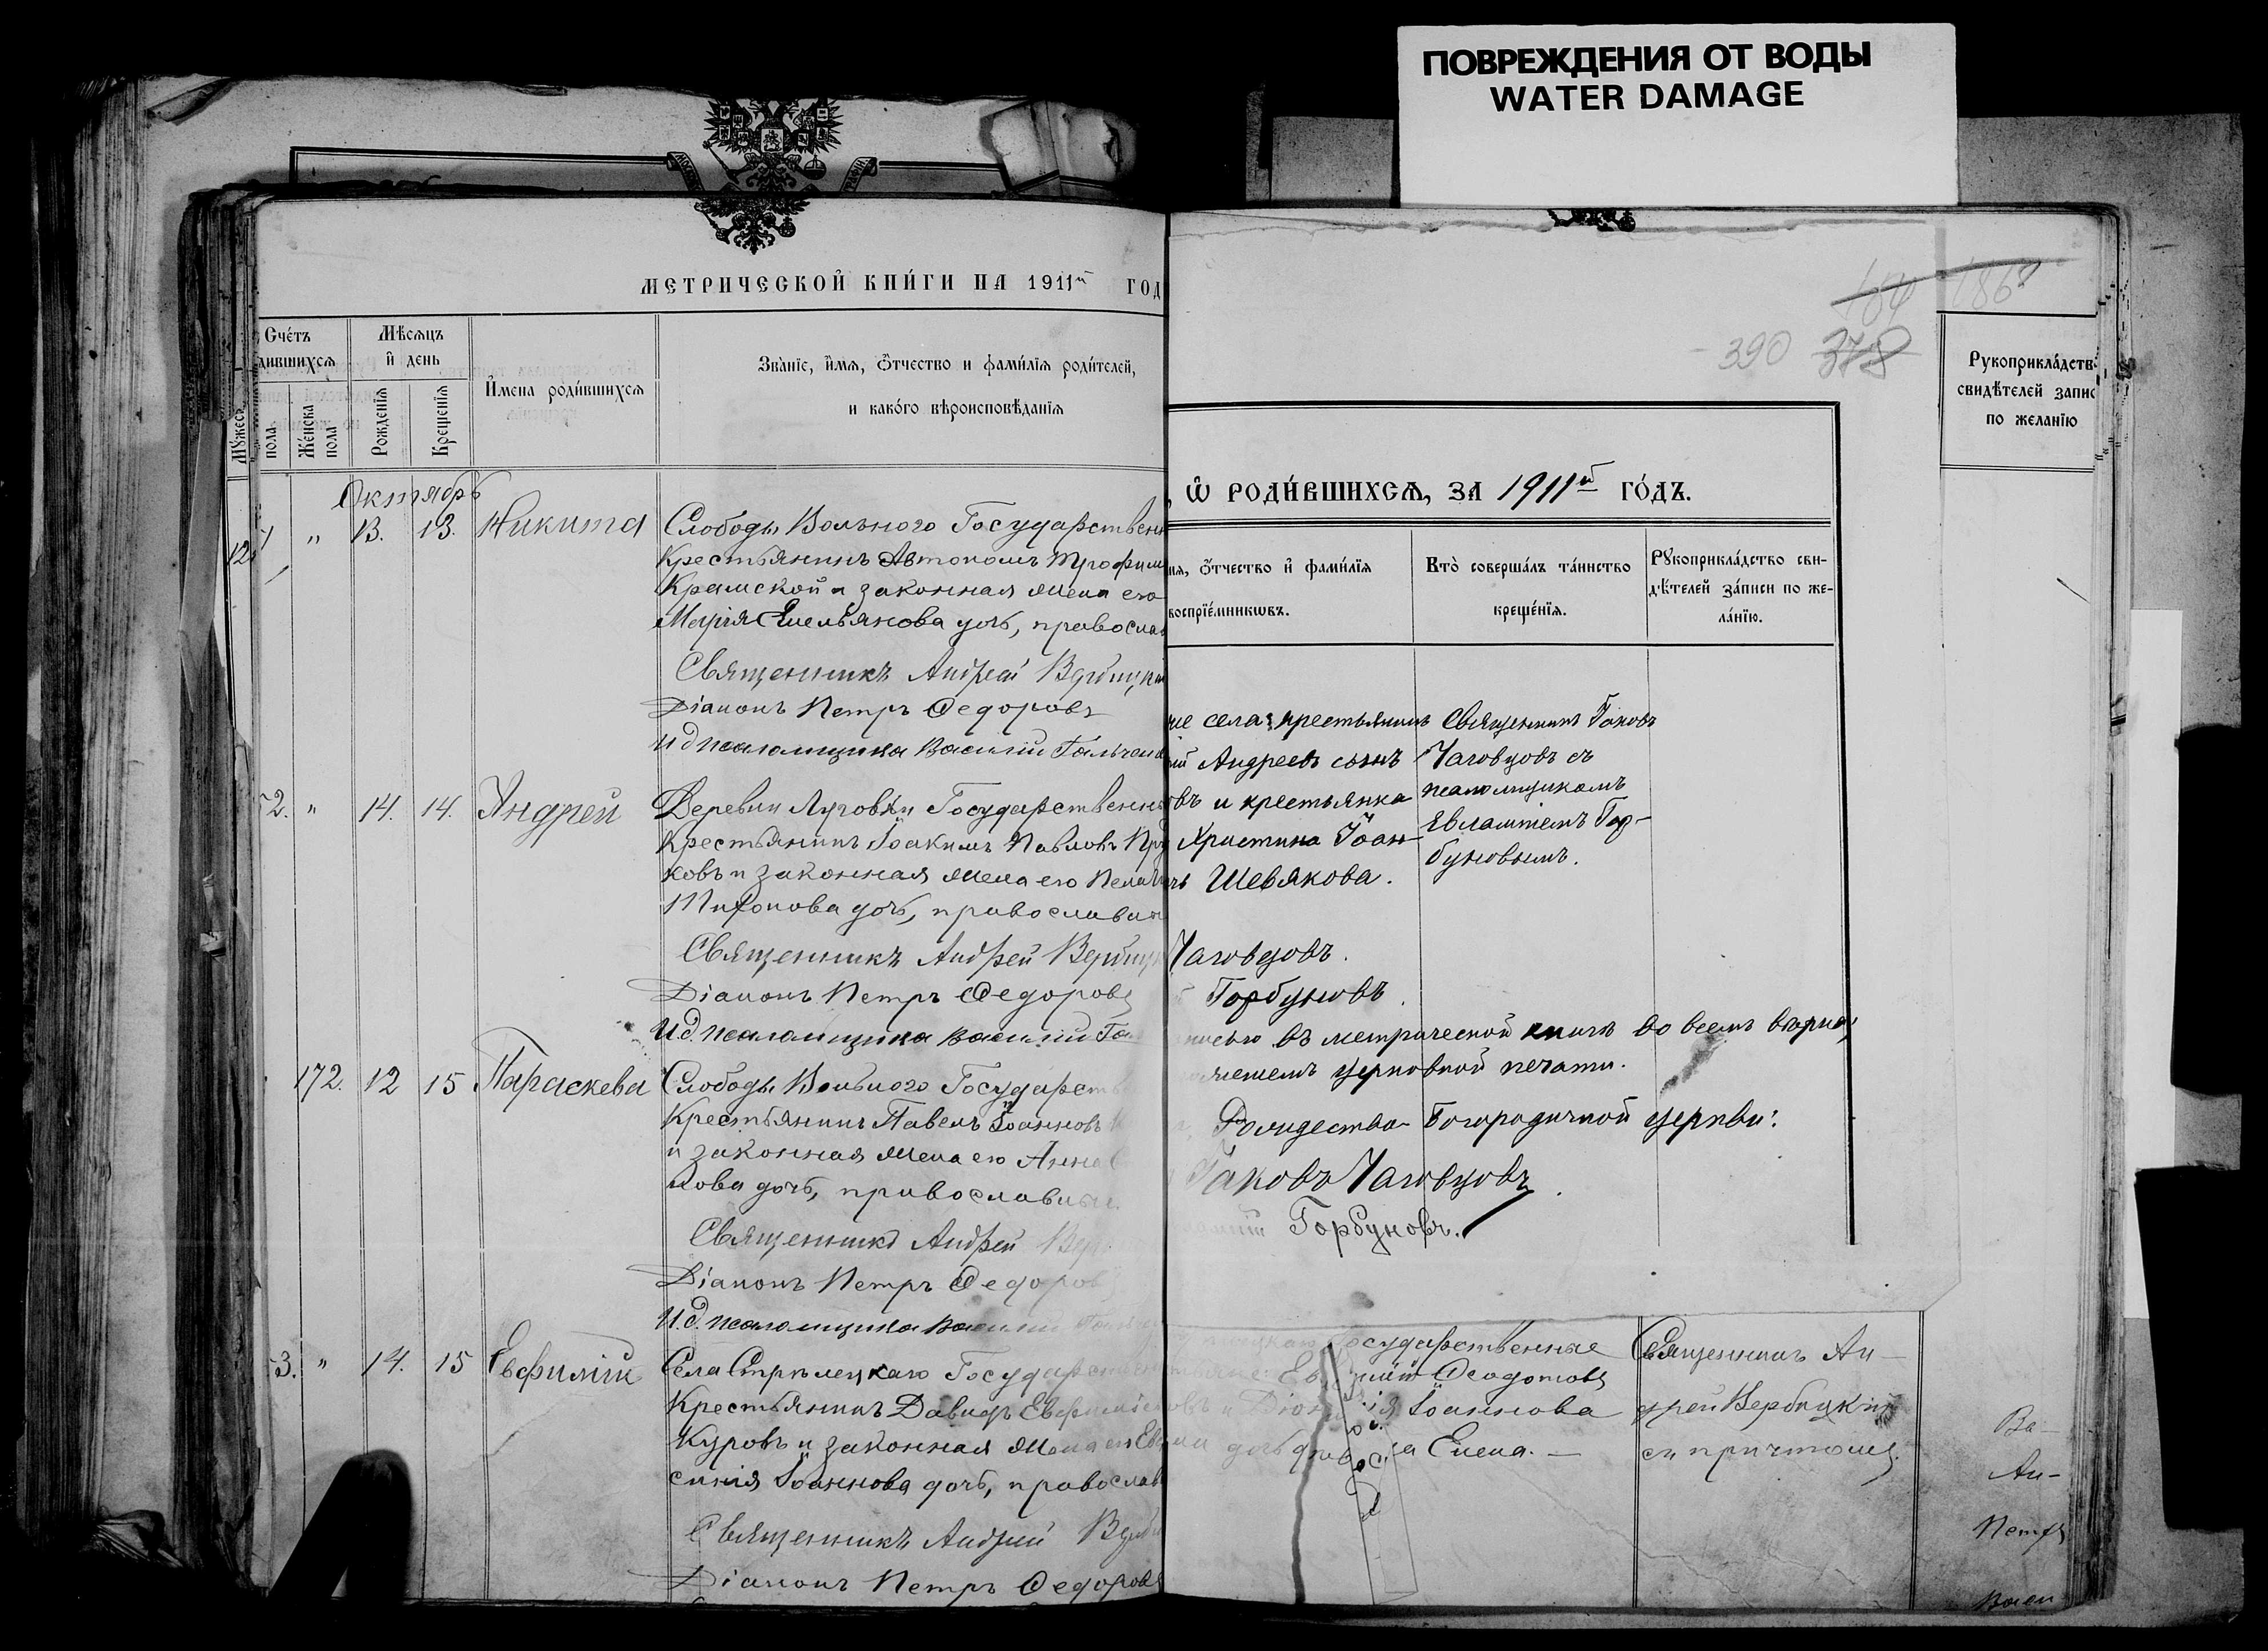 ПОВРЕЖДЕНИЯ ОТ ВОДЫ
WATER DAMAGE
МЕТРИЧЕСКОЙ КНИГИ НА 1911й ГОД
Счетъ
дившихся
Мѣсяцъ
и день
Имена родившихся
Званіе, имя, отчество и фамилія родителей,
и какого вѣроисповѣданія
Мужеска
пола
Женска
пола
Рожденія
Крещенія
Октябрь
" 13. 13. Никита
Слободы Вольнаго Государствен
Крестьянинъ Автономъ Трофим
Крамской и законная жена его
Марія Емельянова дочь, православ
Священникъ Андрей Вербицкій
Діаконъ Петръ Федоровъ
И д псаломщика Василій Гальчен
2. " 14. 14. Андрей
Деревни Луговки Государственн
Крестьянинъ Іоакимъ Павловъ Пру
ковъ и законная жена его Пелаг
Тихонова дочь, православн
Священникъ Андрей Вербицк
Діаконъ Петръ Федоровъ
И.д. псаломщика Василій Гал
172. 12 15 Параскева
Слободы Вольнаго Государств
Крестьянинъ Павелъ Іоанновъ
и законная жена его Анна
лова дочь, православные.
Священникъ Андрей Вер
Діаконъ Петръ Федоров
И.д. псаломщика Василій
3. " 14. 15 Евфимій
Села Стрѣлецкаго Государствен
Крестьянинъ Давидъ Евфиміевъ
Куровъ и законная жена его Ев
синія Іоаннова дочь, православ
Священникъ Андрей Верби
Діаконъ Петръ Федоровъ
184 186
390 378
Рукоприкладств
свидѣтелей запис
по желанію
, Ѡ РОДИВШИХСЯ, ЗА 1911й ГОДЪ.
мя, отчество и фамилія
воспріемниковъ.
Кто совершалъ таинство
крещенія.
Рукоприкладство сви-
дѣтелей записи по же-
ланію.
же села: крестьянинъ
ій Андреевъ сынъ
овъ и крестьянка
Христина Іоан-
чь Шевякова.
Священникъ Іаковъ
Чаговцовъ съ
псаломщикомъ
Евлампіемъ Гор-
буновымъ.
Чаговцовъ.
Горбуновъ.
писью въ метрической книгѣ во всемъ вѣрна;
жешемъ церковной печати.
Рождество-Богородичной церкви:
Іаковъ Чаговцовъ.
Горбуновъ.
Государственные
Ѳеодотовъ
Іоаннова
дочь Елена. —
Священникъ Ан-
дрей Вербицкій
съ причтомъ.
Ва-
Ан-
Петръ
Васи